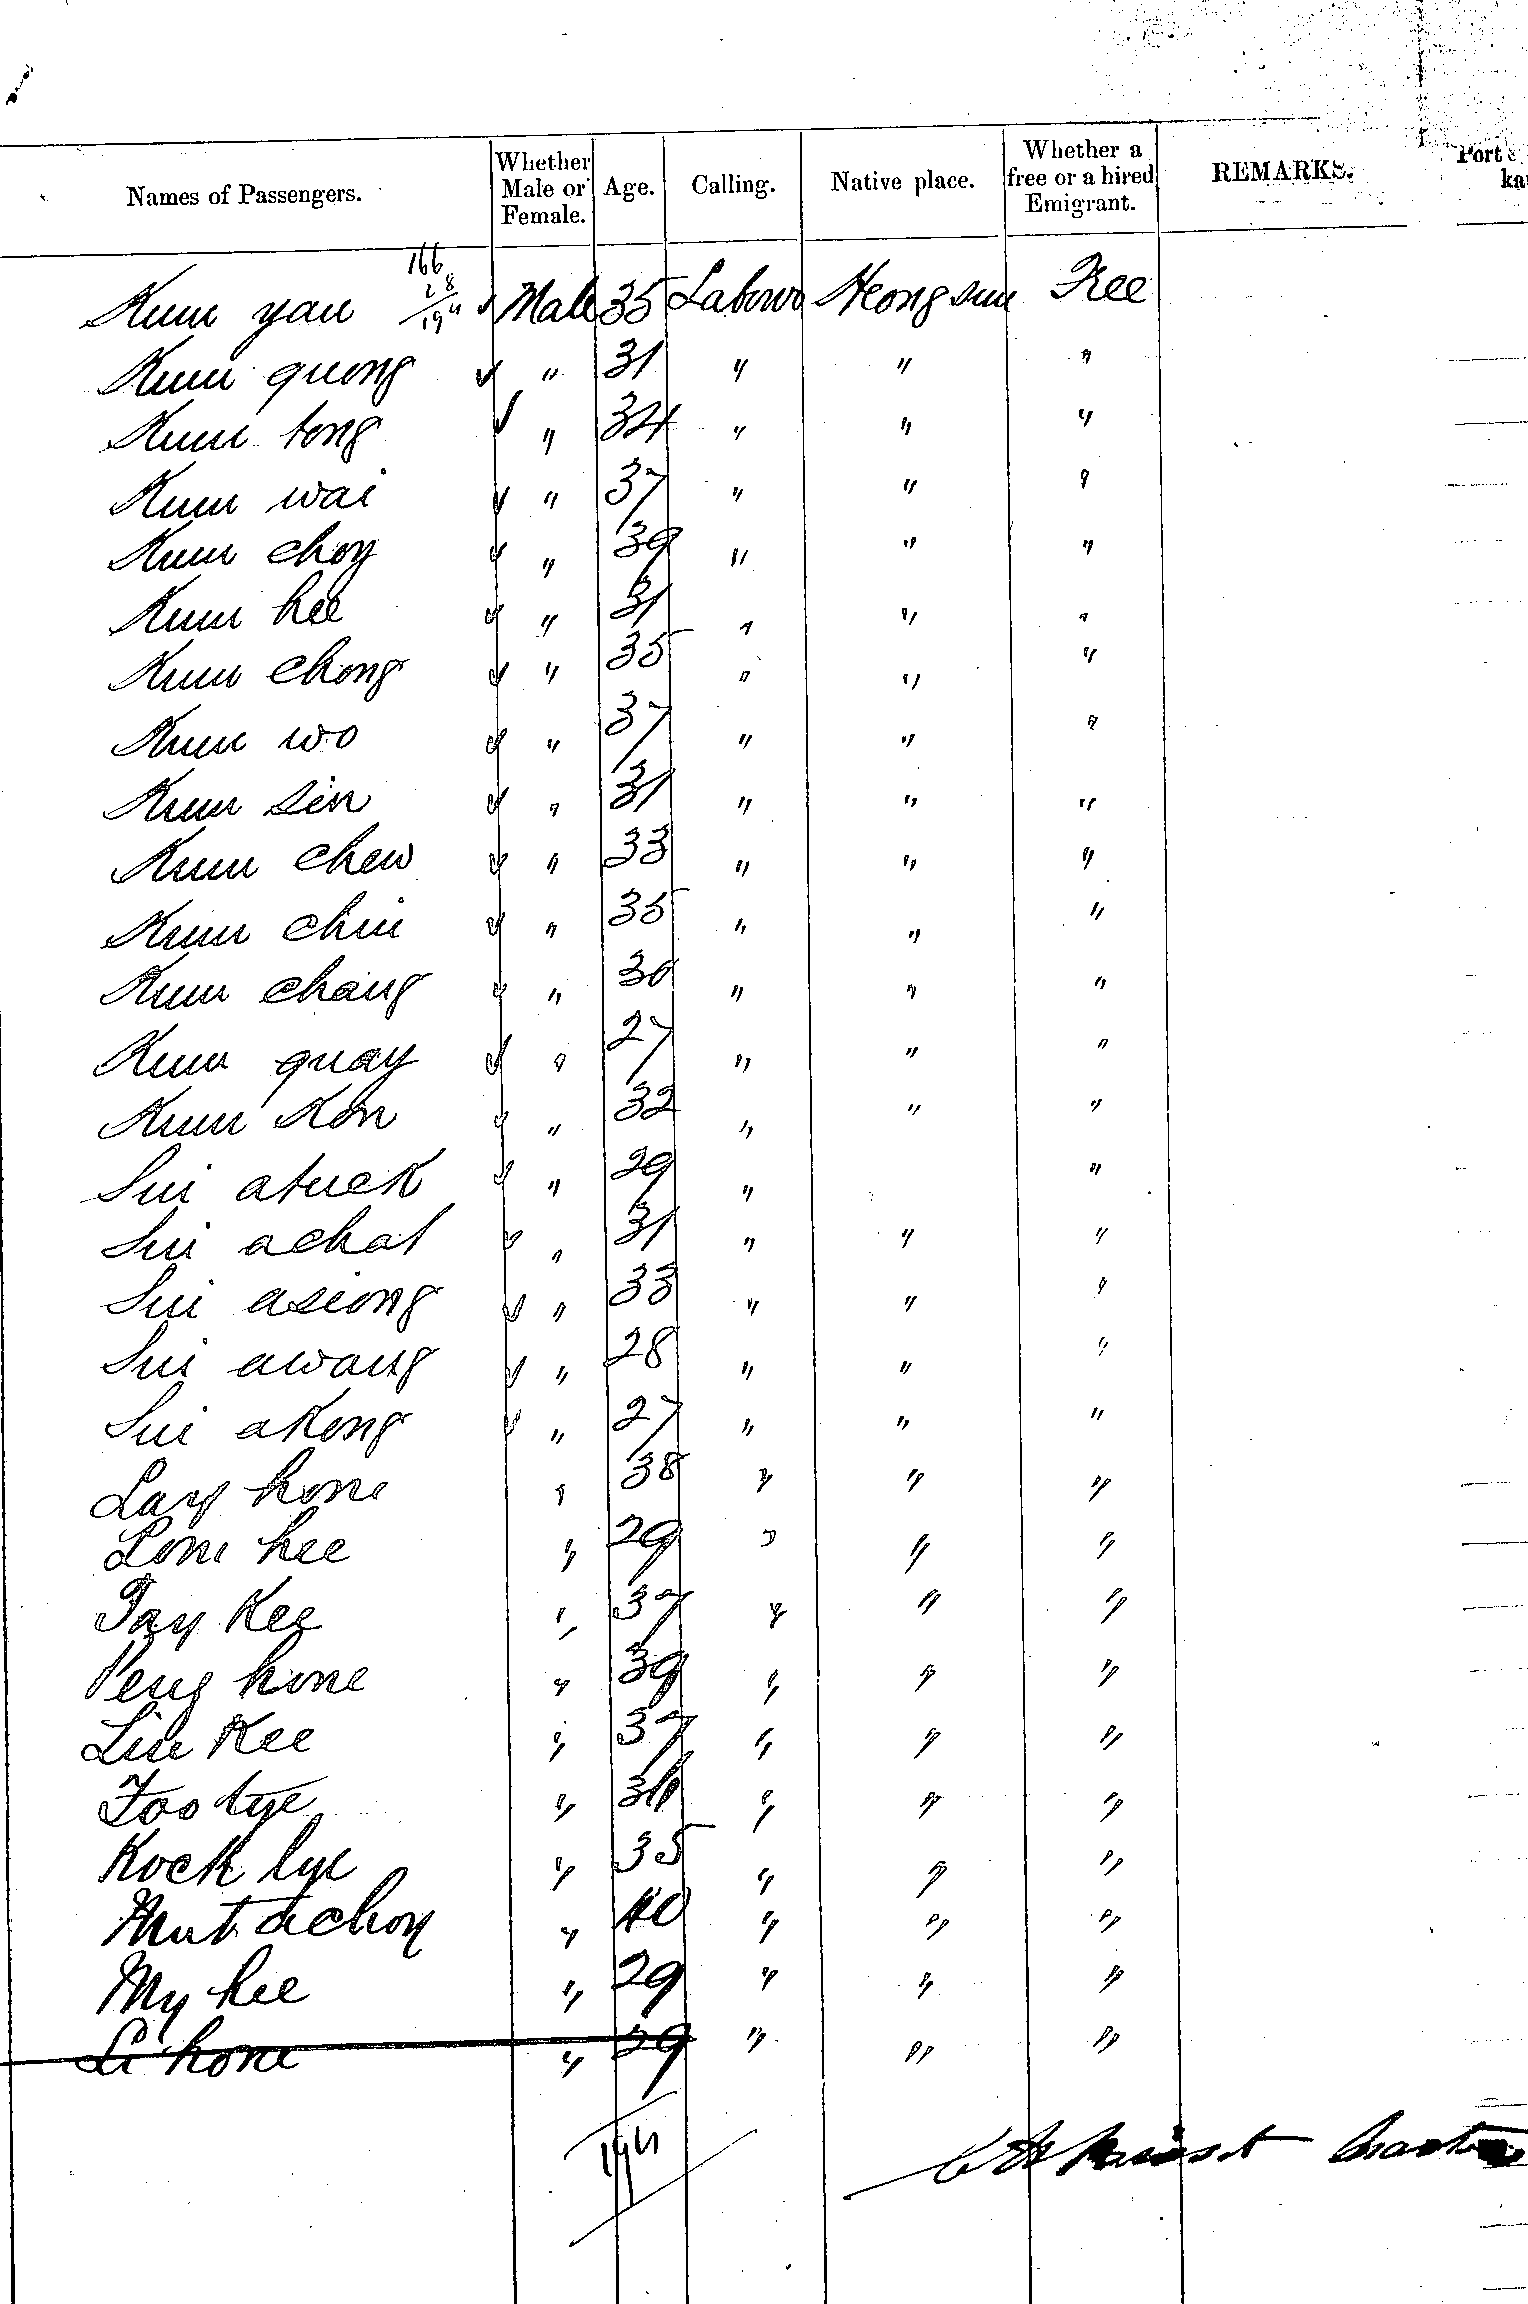 Names of Passengers. Whether Male or Female. Age. Calling. Native place. Whether a free or a hired Emigrant. REMARKS. Port
166
28
194
Kum yau Male 35 Labour Heong sun Free
Kum quong " 31 " " "
Kum tong " 34 " " "
Kum wai " 37 " " "
Kum choy " 39 " " "
Kum hee " 31 " " "
Kum chong " 35 " " "
Kum wo " 37 " " "
Kum sin " 31 " " "
Kum chew " 33 " " "
Kum chiu " 35 " " "
Kum chang " 30 " " "
Kum quay " 27 " " "
Kum Kon " 32 " " "
Sui atuck " 29 " "
Sui achat " 31 " " "
Sui asiong " 33 " " "
Sui awang " 28 " " "
Sui akong " 27 " " "
Lay hone " 38 " " "
Lone hee " 29 " " "
Tay Kee " 37 " " "
Peng hone " 39 " " "
Lin Kee " 37 " " "
Foo tye " 36 " " "
Kock lye " 35 " " "
Mut achoy " 40 " " "
My hee " 29 " " "
Li hone " 39 " " "
194